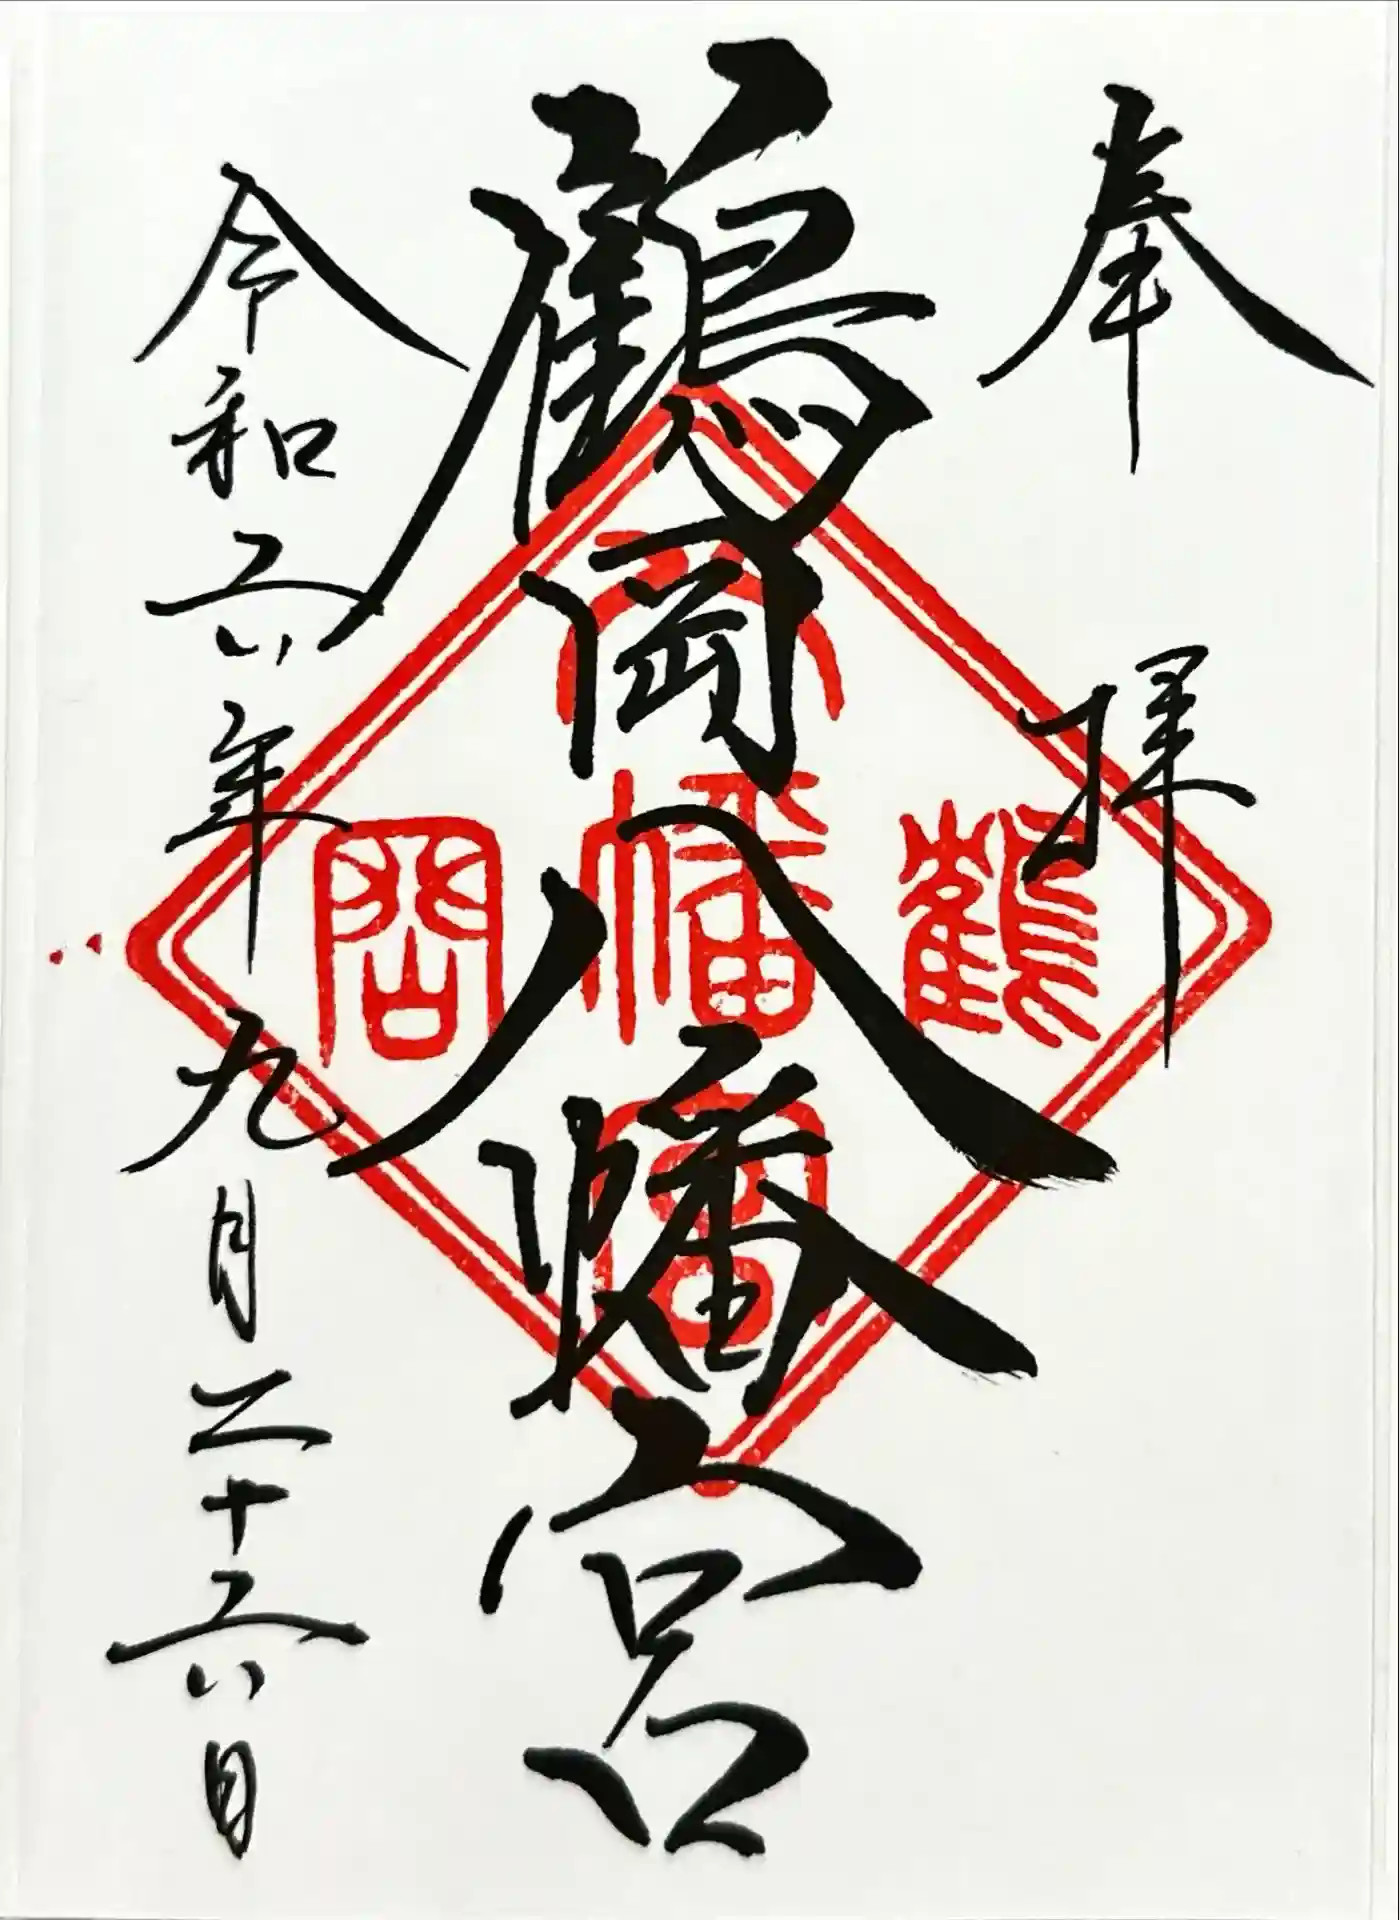 奉拝
鶴岡八幡宮
令和六年九月二十六日
鶴
八幡宮
岡